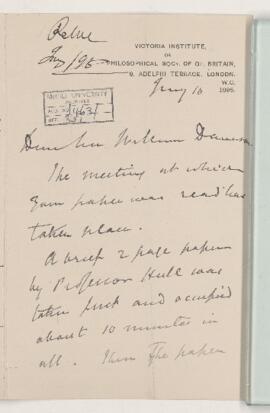 VICTORIA INSTITUTE,
OR
PHILOSOPHICAL SOCY. OF GT. BRITAIN,
8, ADELPHI TERRACE, LONDON.
W.C.
Jany 10 1895.
McGILL UNIVERSITY
ARCHIVES
Dear Sir William Dawson
The meeting at which
your paper was read has
taken place.
A brief 2 page paper
by Professor Hull was
taken first and occupied
about 10 minutes in
all. Then The paper